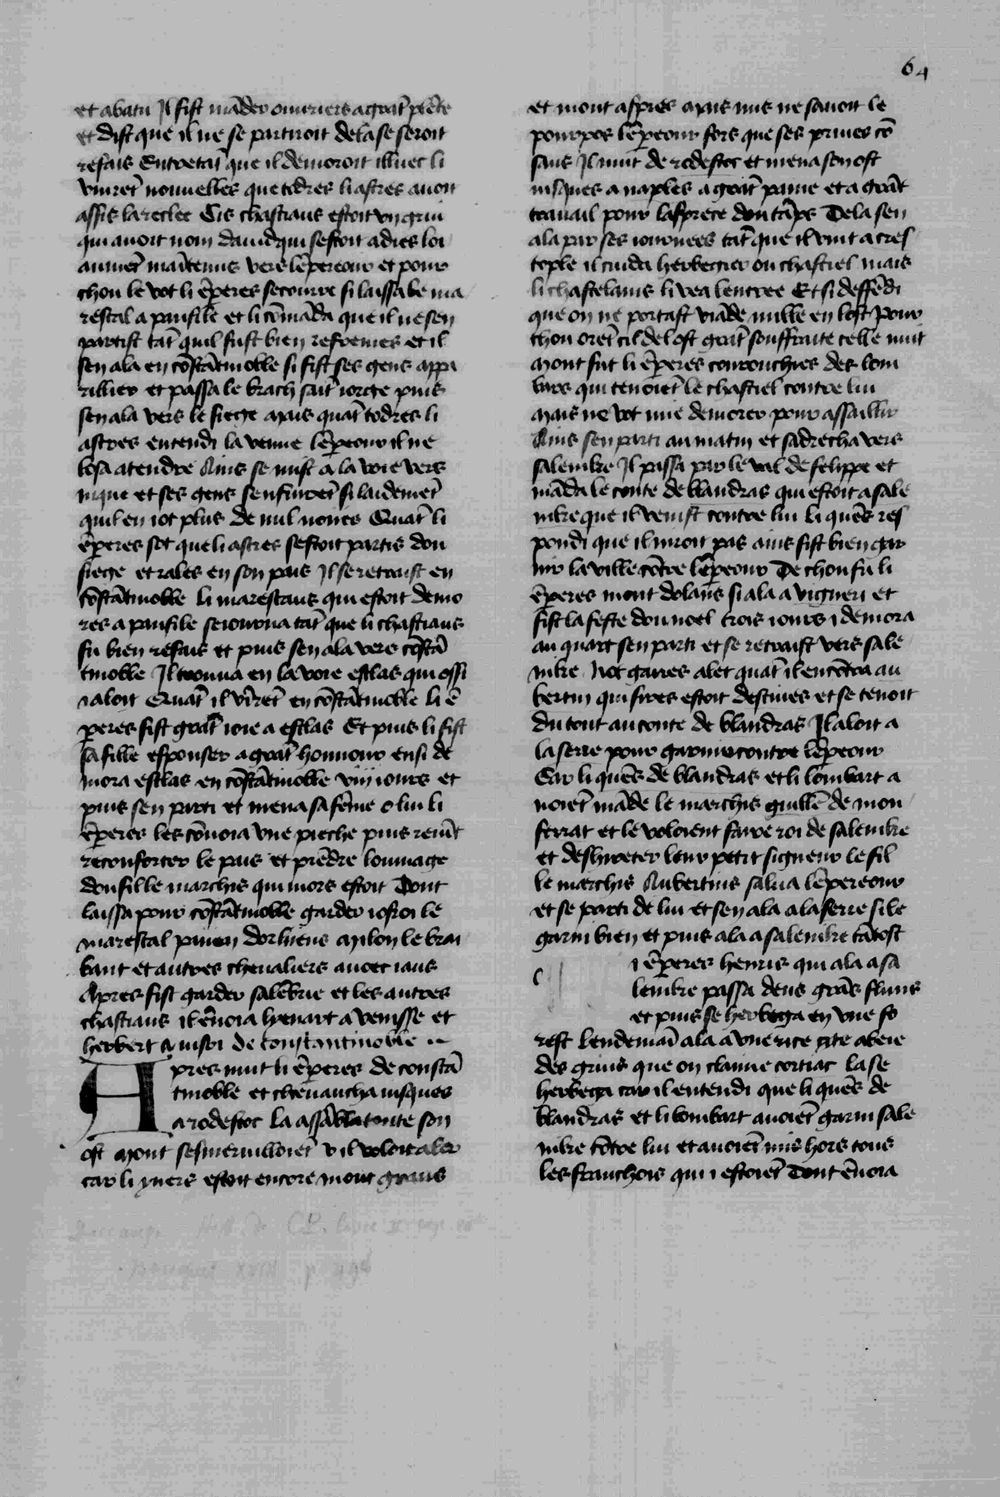 64
et abatu Il fist mãder ouuriers a grãt plẽte
et dist que il ne se partiroit dela se seroit
refais Entretãt que il demoroit illuec li
vinrẽt nouuelles que todres li astres auoit
assis la reclee Cis chastiaus estoit vn griu
qui auoit nom dauid qui sestoit adies loi
aumẽt maĩtenus vers lẽpereour et pour
chou le vot li ẽperes secourre si laissa le ma
restal a panfile et li cõmãda que il ne sen
partist tãt quil fust bien refremes et il
sen ala en cõstãtinoble si fist ses gens appa
rillier et passa le brach saĩt iorge puis
sen ala vers le siege mais quãt todres li
astres entendi la venue lẽpeour il ne
losa atendre Ains se mist a la voie vers
nique et ses gens senfuirẽt si laidemẽt
quil en iot plus de mil noiiés Quãt li
ẽperes sot que li astres sestoit partis dou
siege et rales en son pais Il se retraist en
cõstãtinoble li marescaus qui estoit demo
res a panfile seiourna tãt que li chastiaus
fu bien refais et puis sen ala vers cõstã
tinoble Il trouua en la voie esclas qui ossi
i aloit Quãt il vĩrẽt en cõstãtinoble li ẽ
peres fist grãt ioie a esclas Et puis li fist
sa fille espouser a grãt honnour ensi de
mora esclas en cõstãtinoble viii iours et
puis sen parti et mena sa fẽme o lui li
ẽperes les cõuoia vne pieche puis reuĩt
reconforter le pais et prẽdre lommage
dou fil le marchis qui mors estoit Dont
laissa pour cõstãtinoble garder iofroi le
marestal paien dorliens milon le brai
bant et autres cheualiers auoec iaus
Apres fist garder salẽbrie et les autres
chastiaus il ẽuoia henart a venisse et
herbert a uisoi de constantinoble
Apres mut li ẽperes de constã
tinoble et cheuaucha iusques
a rodestoc la assãbla toute son
ost mout sesmeruilloiẽt v il voloit aler
car li yuers estoit encore mout grans
et mout aspres mais nus ne sauoit le
pourpos lẽpeour fors que ses priues cõ
saus Il mut de rodestoc et mena sen ost
iusques a naples a grãt paine et a grãt
trauail pour lasprece dou tãps De la sen
ala par ses iournees tãt que il vint a cres
tople il cuida herbegier ou chastiel mais
li chastelains li vea lentree Et si deffẽdi
que on ne portast viãde nulle en lost Pour
chou orẽt cil de lost grãt souffraite celle nuit
mout fut li ẽperes courouchies des lom
bars qui tenoiẽt le chastiel contre lui
mais ne vot mie demorer pour assaillir
Ains sen parti au matin et sadrecha vers
salenike Il passa par le val de felippe et
mãda le conte de blandras qui estoit a sale
nike que il venist contre lui li quẽs res
pondi que il niroit pas ains fist bien gar
nir la ville cõtre lẽpeour De chou fu li
ẽperes mout dolãns si ala a vigneri et
fist la feste dou noel trois iours i demora
au quart sen parti et se retraist vers sale
nike Not gaires alet quãt il encõtra au
bertin qui sires estoit destiues et se tenoit
du tout au conte de blandras Il aloit a
la serre pour garnir contre lẽpeour
Car li quẽs de blandras et li lombart a
uoiẽt mãde le marchis guillẽ de mon
ferrat et le voloient faire roi de salenike
et desireter leur petit signeur le fil
le marchis Aubertins salua lẽpereour
et se parti de lui et sen ala a la serre si le
garni bien et puis ala a salenike tãtost
i ẽperes henris qui ala a sa
lenike passa deus grãs fluns
et puis se herbega en vne fo
rest lendemaĩ ala a vne rice cite abeie
des grius que on claime cortiac la se
herbega car il entendi que li quẽs de
blandras et li lombart auoiẽt garni sale
nike cõtre lui et auoiẽt mis hors tous
les franchois qui i estoiẽt Dont ẽuoia